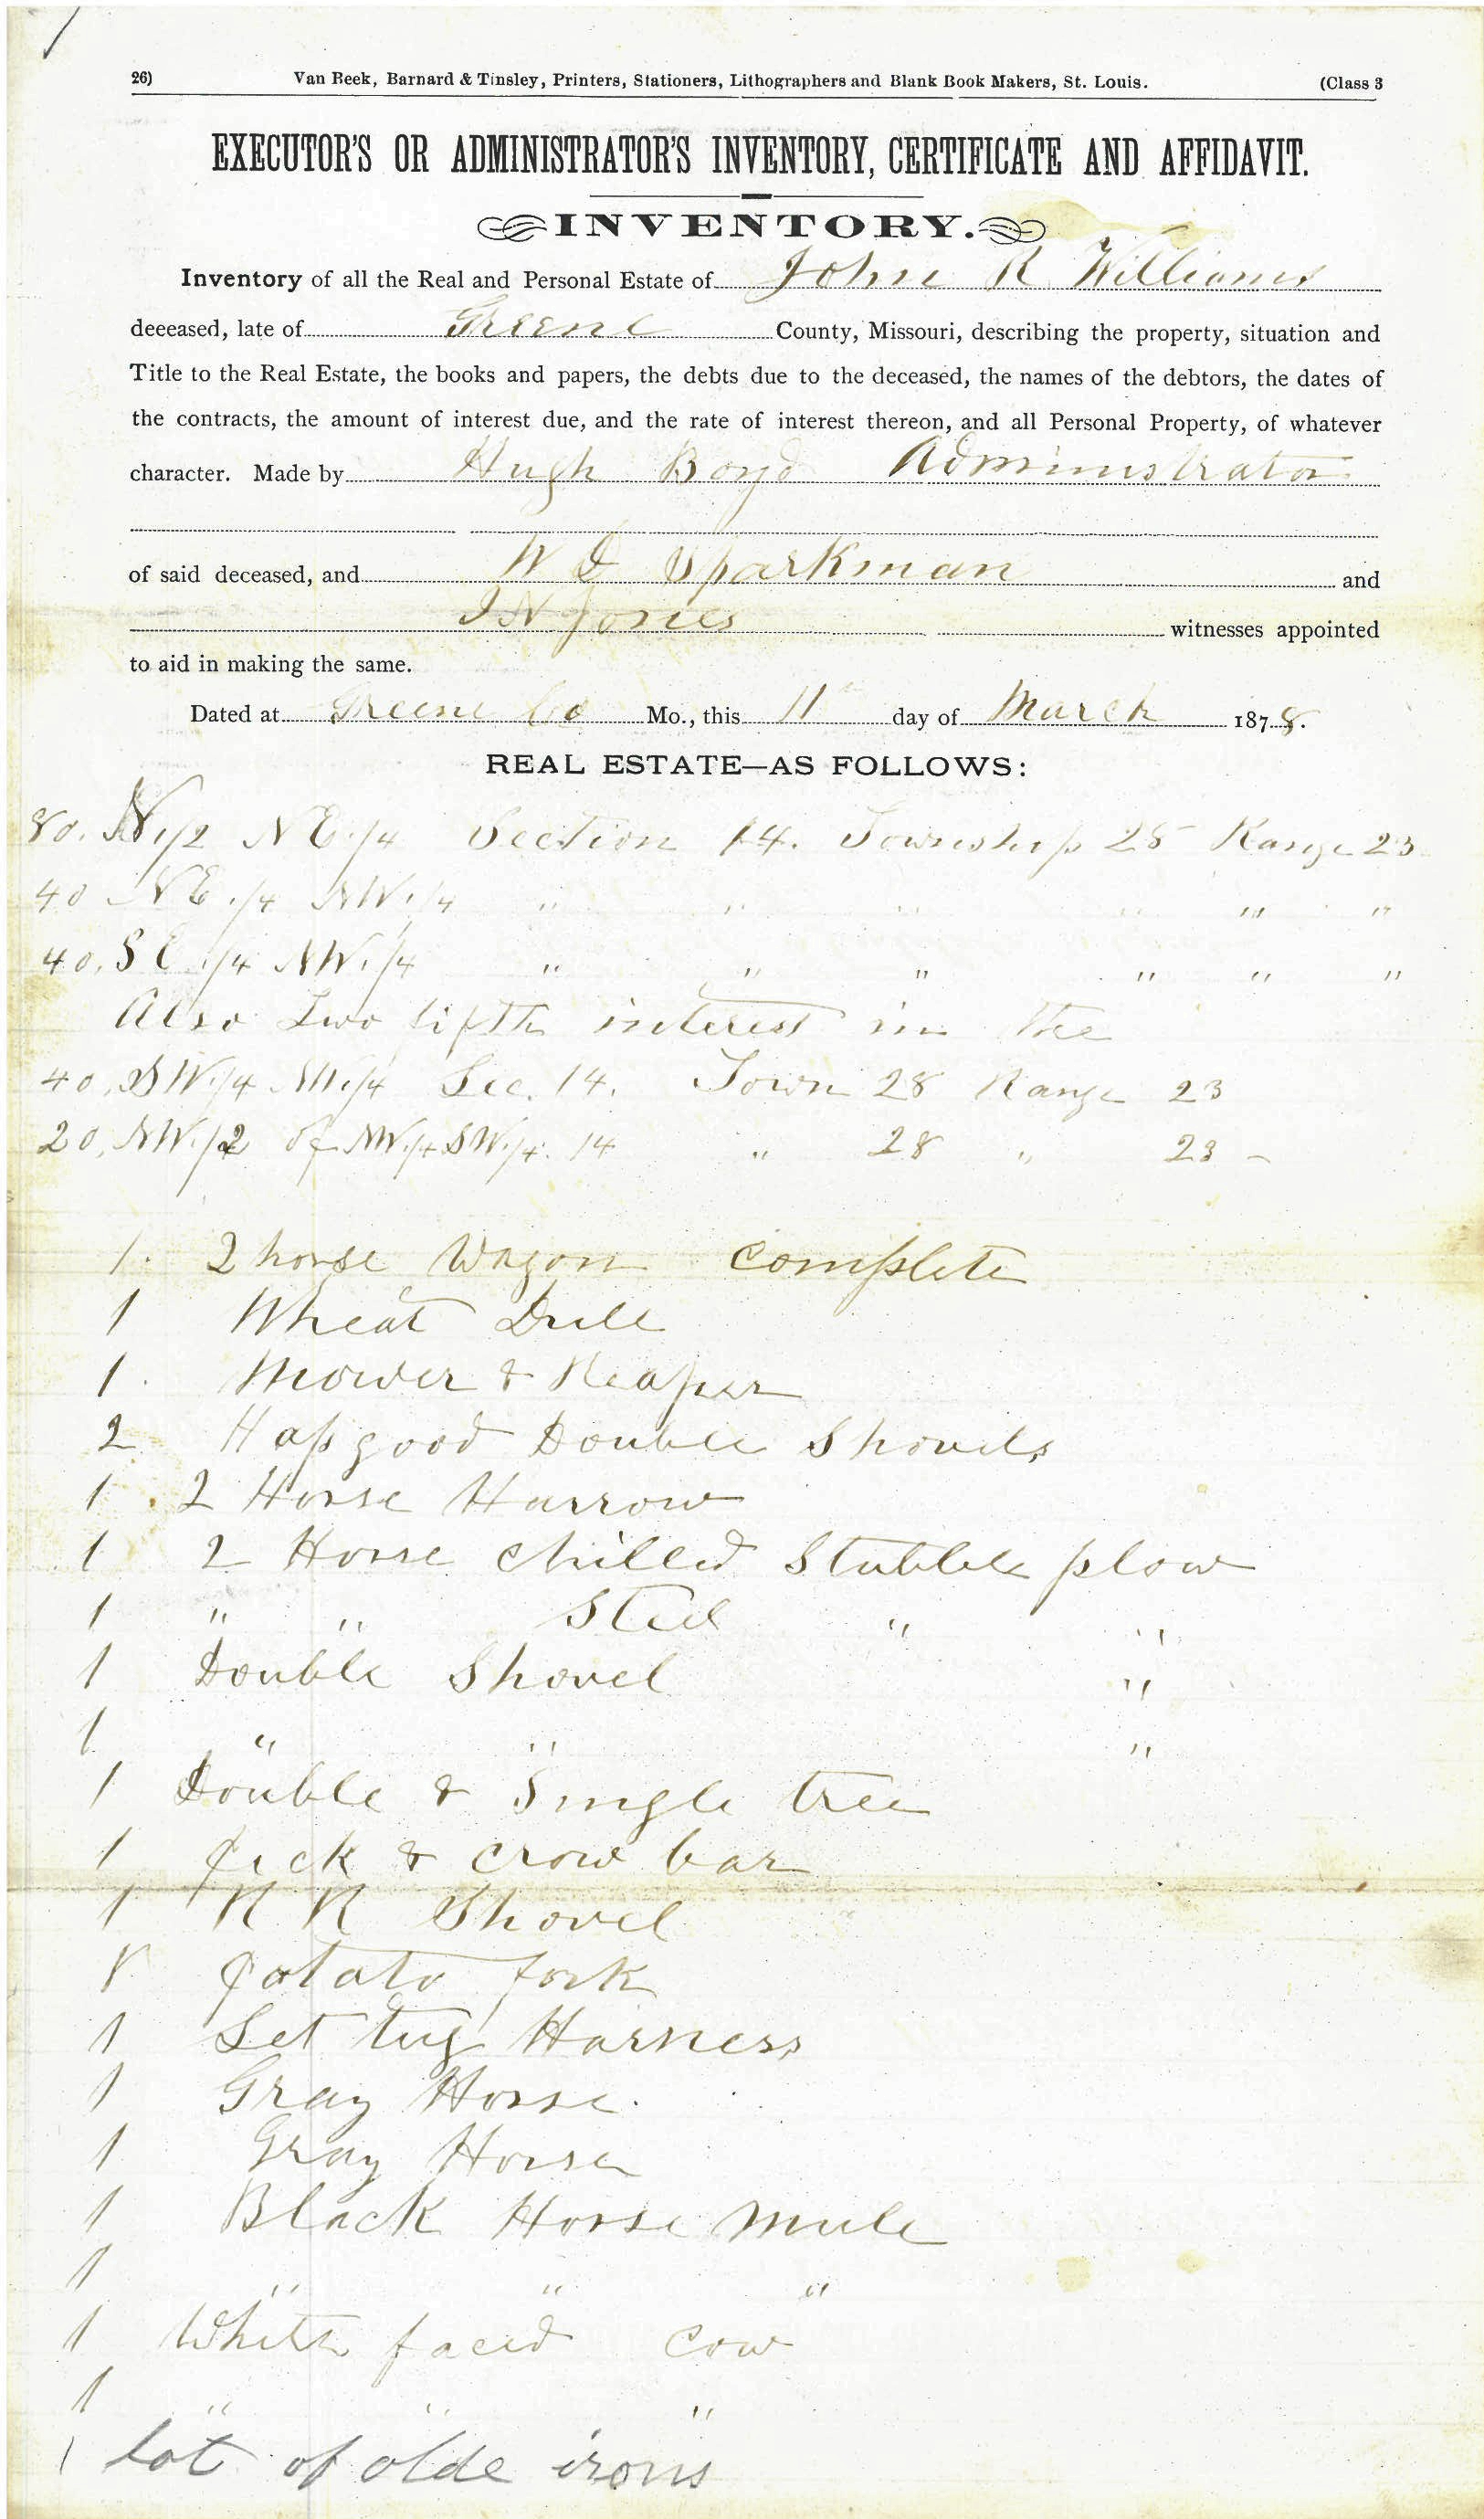 26) Van Beek, Barnard & Tinsley, Printers, Stationers, Lithographers and Blank Book Makers, St. Louis. (Class 3
EXECUTOR'S OR ADMINISTRATOR'S INVENTORY, CERTIFICATE AND AFFIDAVIT.
INVENTORY.
Inventory of all the Real and Personal Estate of John R Williams
deeeased, late of Greene County, Missouri, describing the property, situation and
Title to the Real Estate, the books and papers, the debts due to the deceased, the names of the debtors, the dates of
the contracts, the amount of interest due, and the rate of interest thereon, and all Personal Property, of whatever
character. Made by Hugh Boyd Administrator
of said deceased, and W D Sparkman and
J N Jones witnesses appointed
to aid in making the same.
Dated at Greene Co Mo., this 11th day of March 1878.
REAL ESTATE—AS FOLLOWS:
80. N 1/2 NE 1/4 Section 14. Township 28 Range 23
40 NE 1/4 NW 1/4 " " " " " "
40. SE 1/4 NW 1/4 " " " " " "
Also Two fifth interest in the
40, SW 1/4 NW 1/4 Sec. 14. Town 28 Range 23
20, NW 1/2 of NW 1/4 SW 1/4. 14 " 28 " 23 -
1. 2 horse Wagon complete
1 Wheat Drill
1. Mower & Reaper
2 Hapgood Double Shovels
1. 2 Horse Harrow
1 2 Horse chilled Stubble plow
1 " " Steel " "
1 Double Shovel "
1 " " "
1 Double & Single tree
1 pick & crow bar
1 R R Shovel
1 potato fork
1 Set tug Harness
1 Gray Horse.
1 Gray Horse
1 Black Horse mule
1 " " "
1 White faced cow
1 " " "
1 lot of olde irons